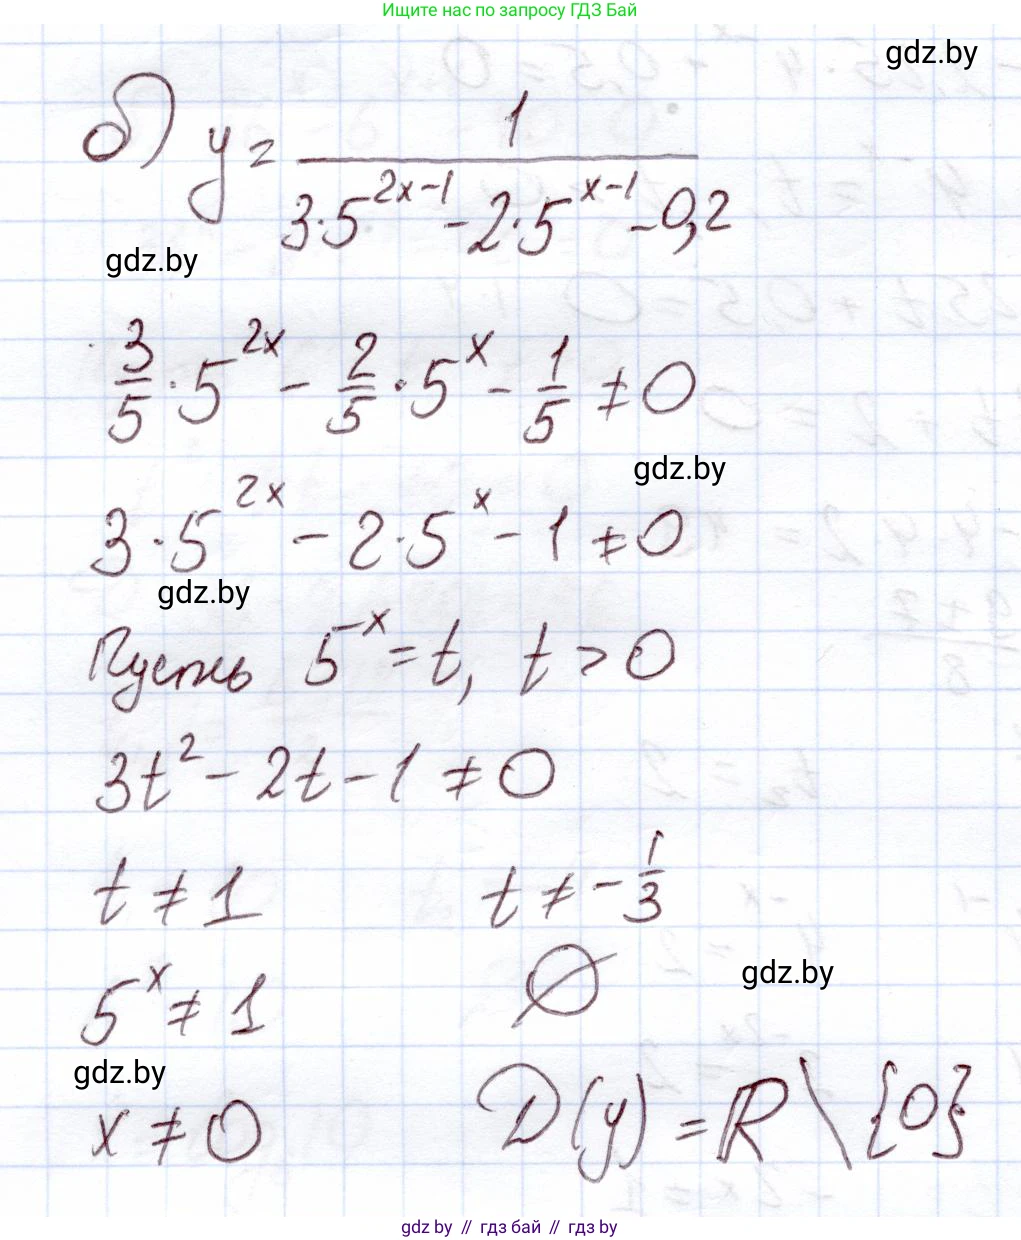 Ищите нас по запросу ГДЗ Бай
gdz.by
б) y = 1 / (3·5^(2x-1) - 2·5^(x-1) - 0,2)
gdz.by
3/5 · 5^(2x) - 2/5 · 5^x - 1/5 ≠ 0
gdz.by
3·5^(2x) - 2·5^x - 1 ≠ 0
gdz.by
Пусть 5^x = t, t > 0
3t² - 2t - 1 ≠ 0
t ≠ 1 t ≠ -1/3
5^x ≠ 1 ∅
gdz.by
gdz.by
x ≠ 0 D(y) = R \ {0}
gdz by // гдз бай // гдз by